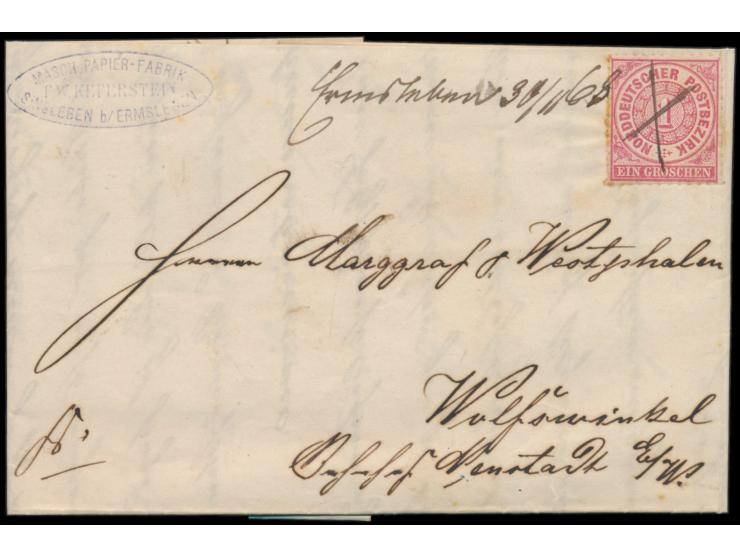 MASCH. PAPIER-FABRIK
F. W. KEFERSTEIN
SINSLEBEN b/ERMSLEBEN
Ermsleben 30/11 68
NORDDEUTSCHER POSTBEZIRK
1
EIN GROSCHEN
Herren Marggraf & Westphalen
Wolfswinkel
Bahnhof Neustadt E/W.